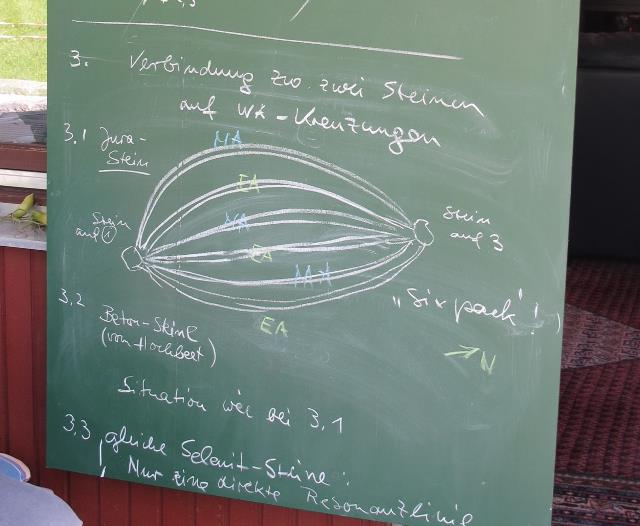 3. Verbindung zw. zwei Steinen
auf WA-Kreuzungen
3.1 Jura-
Stein
MA
EA
MA
EA
MA
EA
Stein
auf 1
Stein
auf 3
"Six pack"!
N
3.2 Beton-Steine
(vom Hochbeet)
Situation wie bei 3.1
3.3 gleiche Selenit-Steine:
Nur eine direkte Resonanzlinie